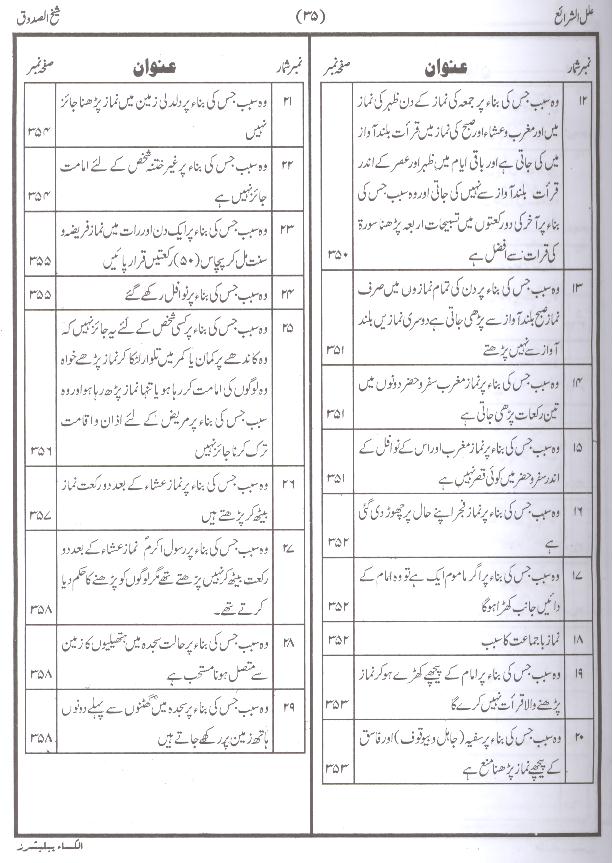 علل الشرائع (۳۵) شیخ الصدوق
نمبر شمار عنوان صفحہ نمبر
۱۲ وہ سبب جس کی بناء پر جمعہ کی نماز کے دن ظہر کی نماز
میں اور مغرب و عشاء اور صبح کی نماز میں قرأت بلند آواز
میں کی جاتی ہے اور باقی ایام میں ظہر اور عصر کے اندر
قرأت بلند آواز سے نہیں کی جاتی اور وہ سبب جس کی
بناء پر آخر کی دو رکعتوں میں تسبیحات اربعہ پڑھنا سورۃ
کی قرات سے افضل ہے ۳۵۰
۱۳ وہ سبب جس کی بناء پر دن کی تمام نمازوں میں صرف
نماز صبح بلند آواز سے پڑھی جاتی ہے دوسری نمازیں بلند
آواز سے نہیں پڑھتے ۳۵۱
۱۴ وہ سبب جس کی بناء پر نماز مغرب سفر و حضر دونوں میں
تین رکعات پڑھی جاتی ہے ۳۵۱
۱۵ وہ سبب جس کی بناء پر نماز مغرب اور اس کے نوافل کے
اندر سفر و حضر میں کوئی قصر نہیں ہے ۳۵۱
۱۶ وہ سبب جس کی بناء پر نماز فجر اپنے حال پر چھوڑ دی گئی
ہے ۳۵۲
۱۷ وہ سبب جس کی بناء پر اگر ماموم ایک ہے تو وہ امام کے
دائیں جانب کھڑا ہوگا ۳۵۲
۱۸ نماز با جماعت کا سبب ۳۵۲
۱۹ وہ سبب جس کی بناء پر امام کے پیچھے کھڑے ہو کر نماز
پڑھنے والا قرأت نہیں کرے گا ۳۵۳
۲۰ وہ سبب جس کی بناء پر سفیہ (جاہل و بیوقوف) اور فاسق
کے پیچھے نماز پڑھنا منع ہے ۳۵۳
نمبر شمار عنوان صفحہ نمبر
۲۱ وہ سبب جس کی بناء پر دلدلی زمین میں نماز پڑھنا جائز
نہیں ۳۵۴
۲۲ وہ سبب جس کی بناء پر غیر ختنہ شخص کے لئے امامت
جائز نہیں ہے ۳۵۴
۲۳ وہ سبب جس کی بناء پر ایک دن اور رات میں نماز فریضہ و
سنت مل کر پچاس (۵۰) رکعتیں قرار پائیں ۳۵۵
۲۴ وہ سبب جس کی بناء پر نوافل رکھے گئے ۳۵۵
۲۵ وہ سبب جس کی بناء پر کسی شخص کے لئے یہ جائز نہیں کہ
وہ کاندھے پر کمان یا کمر میں تلوار لٹکا کر نماز پڑھے خواہ
وہ لوگوں کی امامت کر رہا ہو یا تنہا نماز پڑھ رہا ہو اور وہ
سبب جس کی بناء پر مریض کے لئے اذان و اقامت
ترک کرنا جائز نہیں ۳۵۶
۲۶ وہ سبب جس کی بناء پر نماز عشاء کے بعد دو رکعت نماز
بیٹھ کر پڑھتے ہیں ۳۵۷
۲۷ وہ سبب جس کی بناء پر رسول اکرمؐ نماز عشاء کے بعد دو
رکعت بیٹھ کر نہیں پڑھتے تھے مگر لوگوں کو پڑھنے کا حکم دیا
کرتے تھے۔ ۳۵۸
۲۸ وہ سبب جس کی بناء پر حالت سجدہ میں ہتھیلیوں کا زمین
سے متصل ہونا مستحب ہے ۳۵۸
۲۹ وہ سبب جس کی بناء پر سجدہ میں گھٹنوں سے پہلے دونوں
ہاتھ زمین پر رکھے جاتے ہیں ۳۵۸
الکساء پبلیشرز